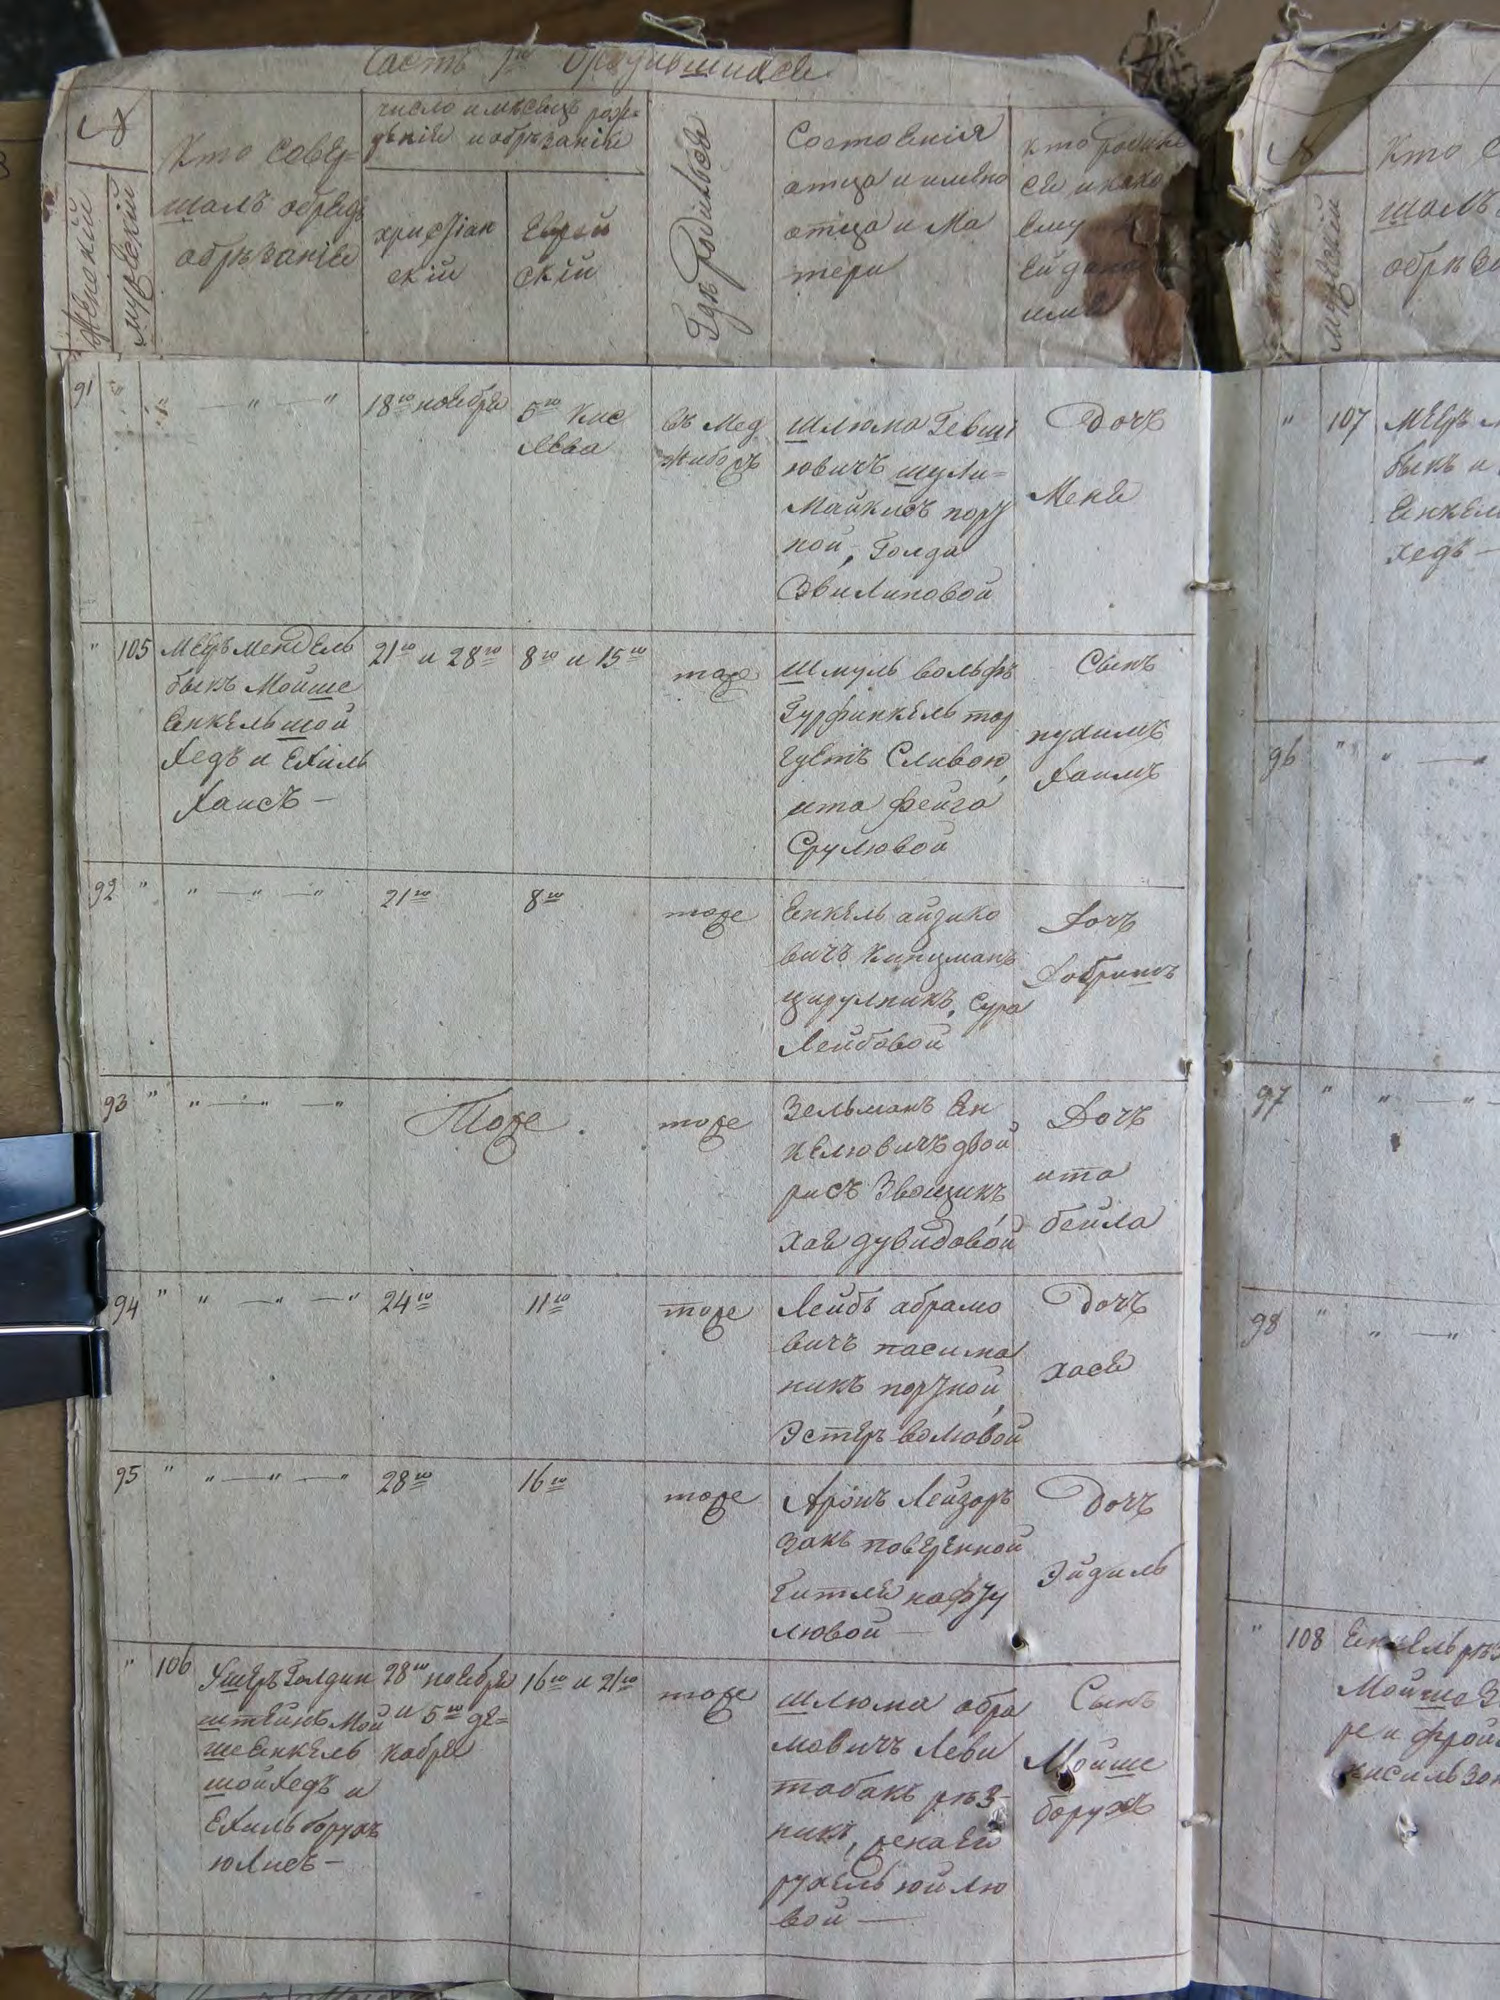 Часть 1я о родившихся
№
Женский
мужеский
Кто совер-
шалъ обрядъ
обрѣзанія
число и мѣсяцъ рож-
дѣнія и обрѣзанія
христіан
скій
Еврей
скій
Гдѣ родился
Состоянія
отца и имена
отца и Ма
тери
кто родил
ся и како
ему и
ей дано
имя
91 " " — " — " 18го ноября 5го Кис
лева
въ Мед
жибожъ
шлюма Гевші
ювичъ шули-
Майкисъ порт
ной, Голда
Эвилиповой
Дочь
Меня
" 105 Мееръ мендель
быкъ Мойше
Енкель шой
хедъ и Ехиль
Хаисъ —
21го и 28го 8го и 15го тоже
Шмуль вольфъ
Гурфинкель тор
гуетъ Сливою,
ита фейга
Срулювой
Сынъ
нухимъ
Хаимъ
92 " " — " — " 21го 8го тоже
Енкель айзико
вичъ Кипцманъ
цирулникъ, Сура
Лейбовой
Дочь
Добришъ
93 " " — " — " Тоже. тоже
Зельманъ Ен
келювичъ двой
рисъ Звощикъ,
хая дувидовой
Дочь
ита
бейла
94 " " — " — " 24го 11го тоже
Лейбъ абрамо
вичъ пасима
никъ портной,
Эстеръ волювой
Дочь
хася
95 " " — " — " 28го 16го тоже
Аронъ Лейзоръ
закъ повѣренной
Гитля нафту
лювой —
Дочь
Эйдиль
" 106 Ушеръ Голдин
штейнъ Мой
ше Енкель
шойхедъ и
Ехиль борухъ
юлисъ —
28го ноября
и 5го де-
кабря
16го и 21го тоже
шлюма абра
мовичъ Леви
табакъ рѣз-
никъ, жена ей
рухель юйлю
вой —
Сынъ
Мойше
борухъ
№
мужеский
Кто
шалъ
обрѣза
" 107 Мееръ
быкъ и
Енкель
хедъ —
96 " " —
97 " " — "
98 " " — "
" 108 Енкель рѣз
Мойше
ре и фрой